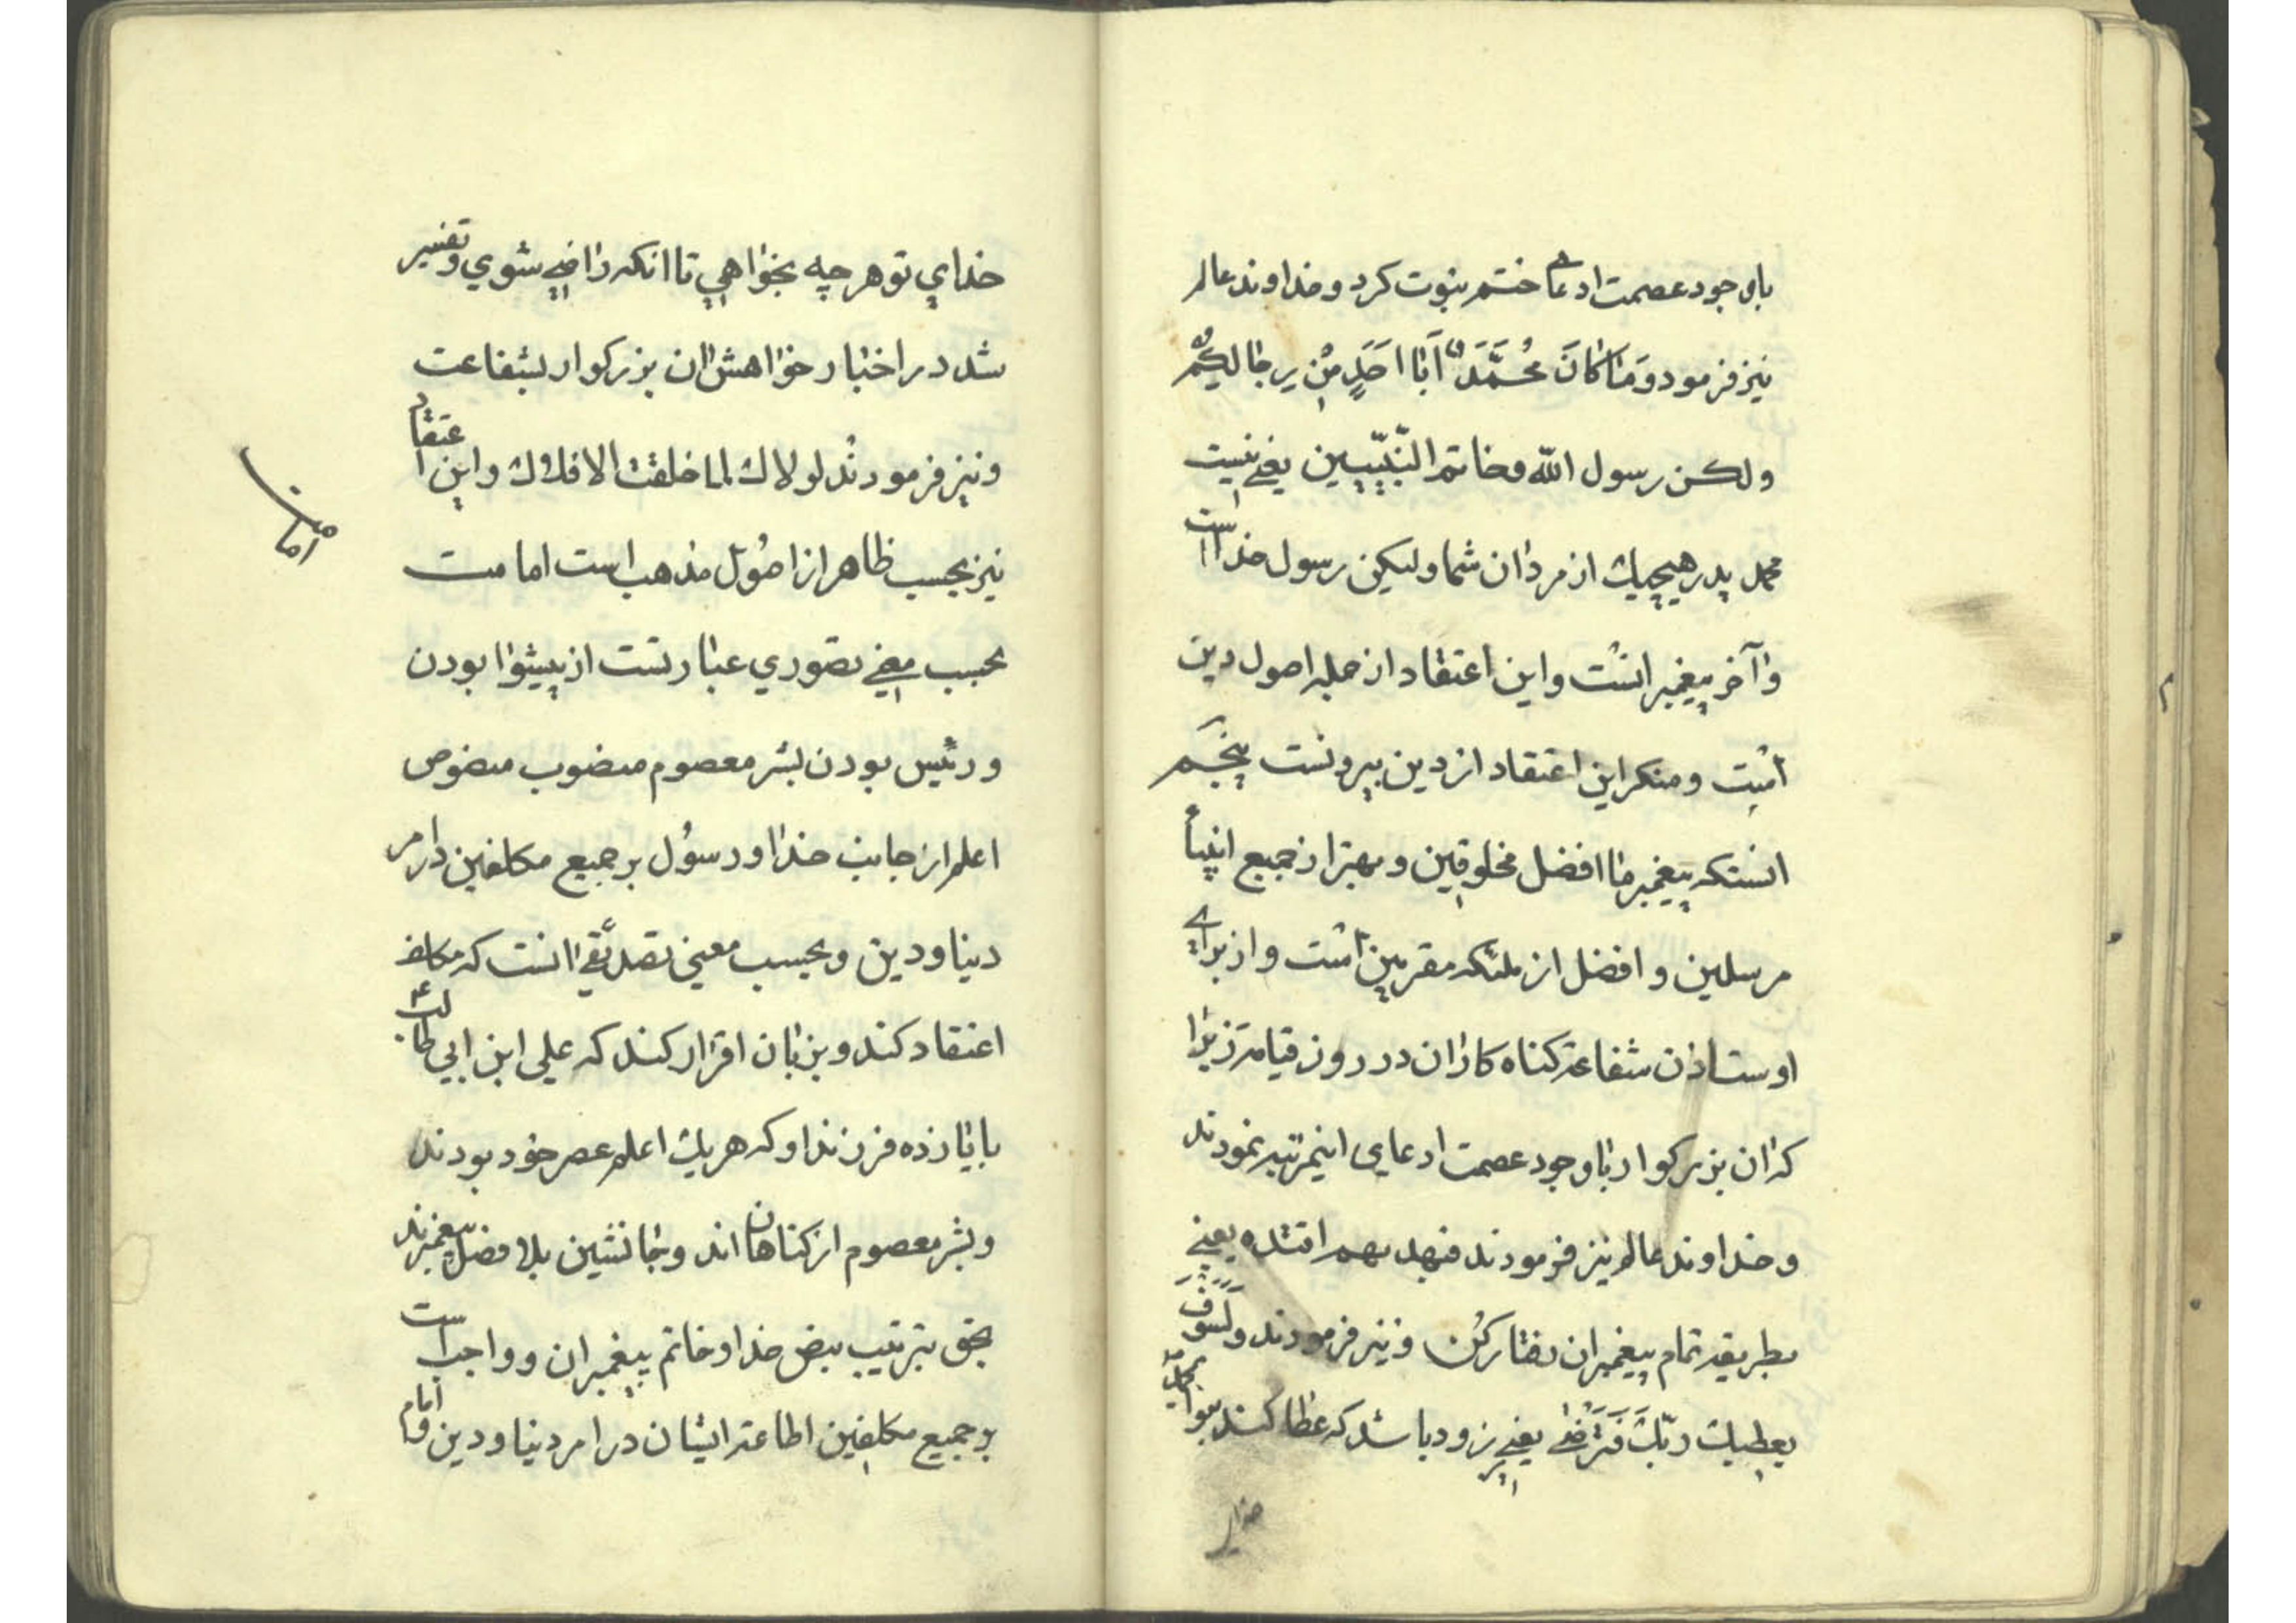 باوجود عصمت ادعای ختم نبوت کرد و خداوند عالم
نیز فرمود وَمَا کَانَ مُحَمَّدٌ اَبَا اَحَدٍ مِن رِجَالِکُم
ولکن رسول اللّه و خاتم النّبیّین یعنی نیست
محمد پدر هیچیك از مردان شما ولیکن رسول خدا است
و آخر پیغمبرانست و این اعتقاد از جمله اصول دین
است و منکر این اعتقاد از دین بیرونست پنجم
انستکه پیغمبر ما افضل مخلوقین و بهتر از جمیع انبیأ
مرسلین و افضل از ملئکه مقربین است و از برای
اوست اذن شفاعة کناه کاران در روز قیامة زیرا
که ان بزرکوار باوجود عصمت ادعای اینمرتبه نمودند
و خداوند عالم نیز فرمودند فبهد یهم اقتده یعنی
بطریقه تمام پیغمبران رفتار کن و نیز فرمودند وَلَسَوفَ
یعطیك ربّك فَتَرضی یعنی زود باشد که عطا کند بتو ای محمد
خدای
خدای تو هرچه بخواهی تا انکه راضی شوی و تفسیر
شد در اخبار خواهش ان بزرکوار بشفاعت
و نیز فرمودند لولاك لما خلقت الافلاك و این اعتقاد
نیز بحسب ظاهر از اصول مذهب است امامت
بحسب معنی تصوری عبارتست از پیشوا بودن
و رئیس بودن بشر معصوم منصوب منصوص
اعلم از جانب خدا و رسول بر جمیع مکلفین در امر
دنیا و دین و بحسب معنی تصدیقی انست که مکلف
اعتقاد کند و بزبان اقرار کند که علی ابن ابی طالب ع
با یازده فرزند او که هریك اعلم عصر خود بودند
و بشر معصوم از کناهان اند و جانشین بلا فصل پیغمبرند
بحق بترتیب بنص خدا و خاتم پیغمبران و واجب است
بر جمیع مکلفین اطاعة ایشان در امر دنیا و دین و امام
امامت